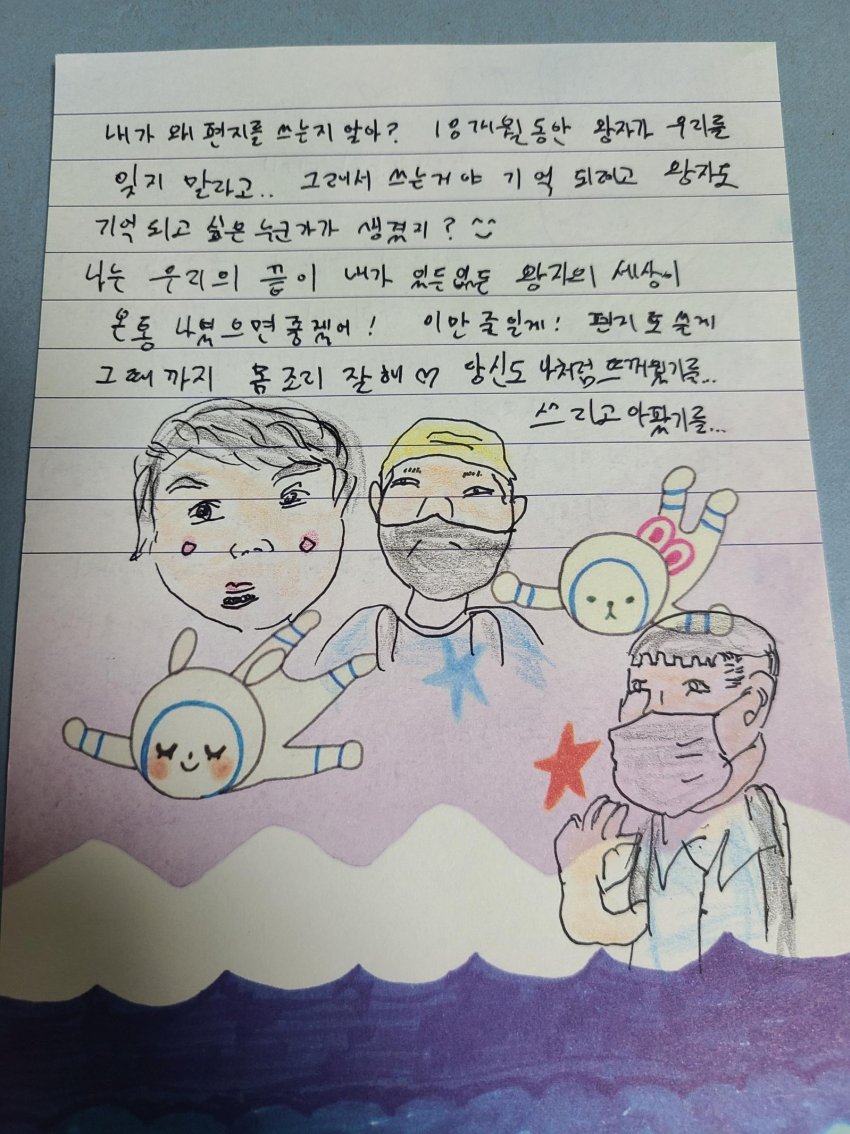 내가 왜 편지를 쓰는지 알아? 18개월동안 왕자가 우리를
잊지 말라고.. 그래서 쓰는거야 기억 되려고 왕자도
기억되고 싶은 누군가가 생겼지? ^^
나는 우리의 끝이 내가 있든없든 왕자의 세상이
온통 나였으면 좋겠어! 이만 줄일게! 편지 또 쓸게
그때까지 몸조리 잘해♡ 당신도 나처럼 뜨거웠기를...
쓰리고 아팠기를...